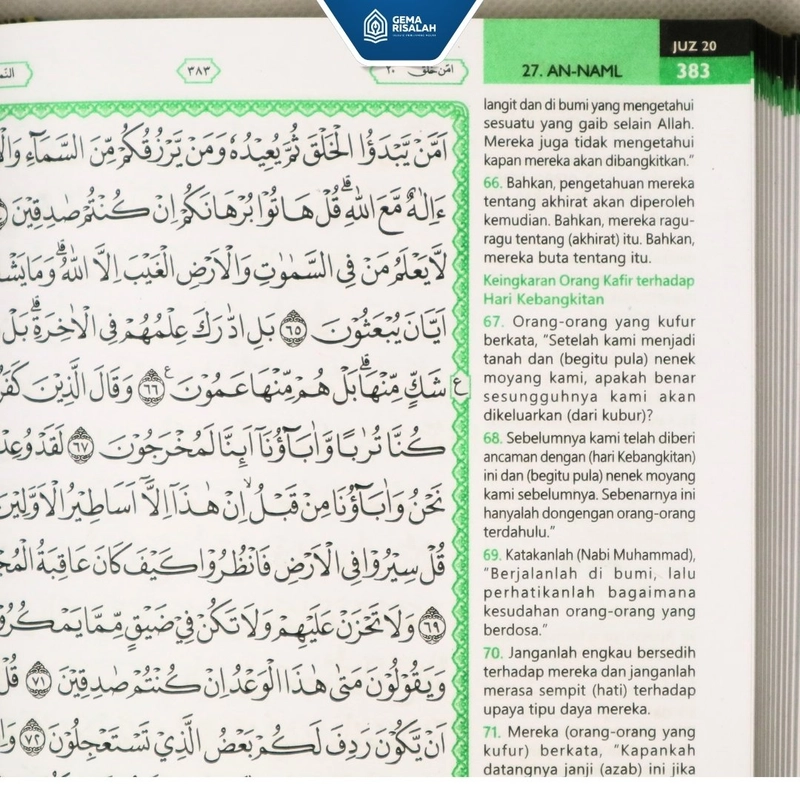 GEMA
RISALAH
JUZ 20
27. AN-NAML
383
٣٨٣
امّن خلق ٢٠
اَمَّنْ يَّبْدَؤُا الْخَلْقَ ثُمَّ يُعِيْدُهٗ وَمَنْ يَّرْزُقُكُمْ مِّنَ السَّمَاۤءِ
ءَاِلٰهٌ مَّعَ اللّٰهِ ۗقُلْ هَاتُوْا بُرْهَانَكُمْ اِنْ كُنْتُمْ صٰدِقِيْنَ
لَّا يَعْلَمُ مَنْ فِى السَّمٰوٰتِ وَالْاَرْضِ الْغَيْبَ اِلَّا اللّٰهُ ۗوَمَا
اَيَّانَ يُبْعَثُوْنَ ٦٥ بَلِ ادّٰرَكَ عِلْمُهُمْ فِى الْاٰخِرَةِۗ بَلْ
شَكٍّ مِّنْهَاۗ بَلْ هُمْ مِّنْهَا عَمُوْنَ ࣖ ٦٦ وَقَالَ الَّذِيْنَ
كُنَّا تُرٰبًا وَّاٰبَاۤؤُنَآ اَىِٕنَّا لَمُخْرَجُوْنَ ٦٧ لَقَدْ
نَحْنُ وَاٰبَاۤؤُنَا مِنْ قَبْلُۙ اِنْ هٰذَآ اِلَّآ اَسَاطِيْرُ الْاَوَّلِيْنَ
قُلْ سِيْرُوْا فِى الْاَرْضِ فَانْظُرُوْا كَيْفَ كَانَ عَاقِبَةُ
٦٩ وَلَا تَحْزَنْ عَلَيْهِمْ وَلَا تَكُنْ فِيْ ضَيْقٍ مِّمَّا
وَيَقُوْلُوْنَ مَتٰى هٰذَا الْوَعْدُ اِنْ كُنْتُمْ صٰدِقِيْنَ ٧١ قُلْ
اَنْ يَّكُوْنَ رَدِفَ لَكُمْ بَعْضُ الَّذِيْ تَسْتَعْجِلُوْنَ ٧٢
ع
langit dan di bumi yang mengetahui
sesuatu yang gaib selain Allah.
Mereka juga tidak mengetahui
kapan mereka akan dibangkitkan."
66. Bahkan, pengetahuan mereka
tentang akhirat akan diperoleh
kemudian. Bahkan, mereka ragu-
ragu tentang (akhirat) itu. Bahkan,
mereka buta tentang itu.
Keingkaran Orang Kafir terhadap
Hari Kebangkitan
67. Orang-orang yang kufur
berkata, "Setelah kami menjadi
tanah dan (begitu pula) nenek
moyang kami, apakah benar
sesungguhnya kami akan
dikeluarkan (dari kubur)?
68. Sebelumnya kami telah diberi
ancaman dengan (hari Kebangkitan)
ini dan (begitu pula) nenek moyang
kami sebelumnya. Sebenarnya ini
hanyalah dongengan orang-orang
terdahulu."
69. Katakanlah (Nabi Muhammad),
"Berjalanlah di bumi, lalu
perhatikanlah bagaimana
kesudahan orang-orang yang
berdosa."
70. Janganlah engkau bersedih
terhadap mereka dan janganlah
merasa sempit (hati) terhadap
upaya tipu daya mereka.
71. Mereka (orang-orang yang
kufur) berkata, "Kapankah
datangnya janji (azab) ini jika